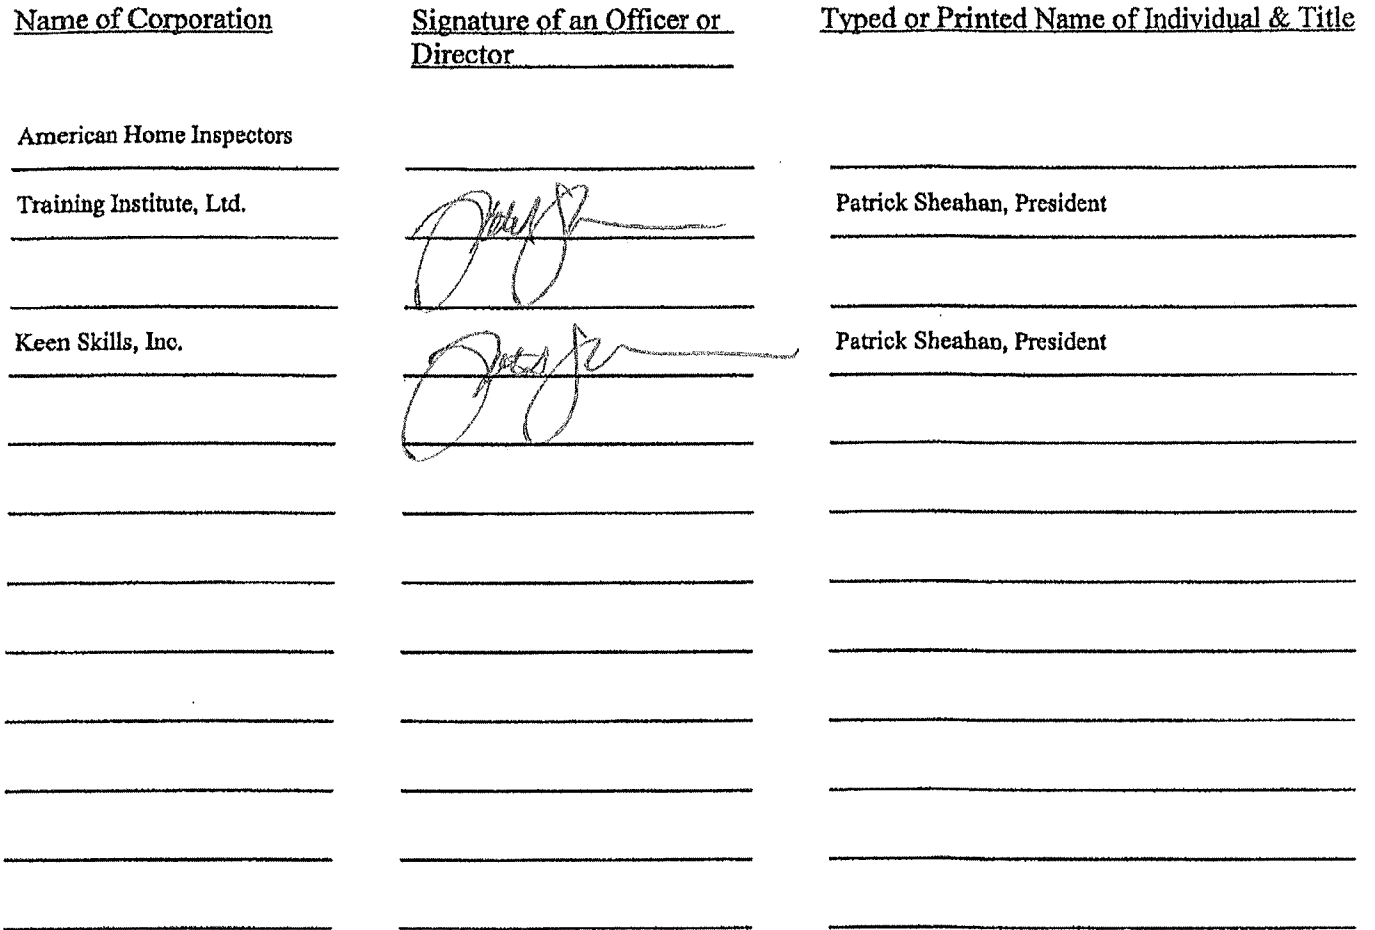 Name of Corporation
Signature of an Officer or
Director
Typed or Printed Name of Individual & Title
American Home Inspectors
Training Institute, Ltd.
Patrick Sheahan, President
Keen Skills, Inc.
Patrick Sheahan, President